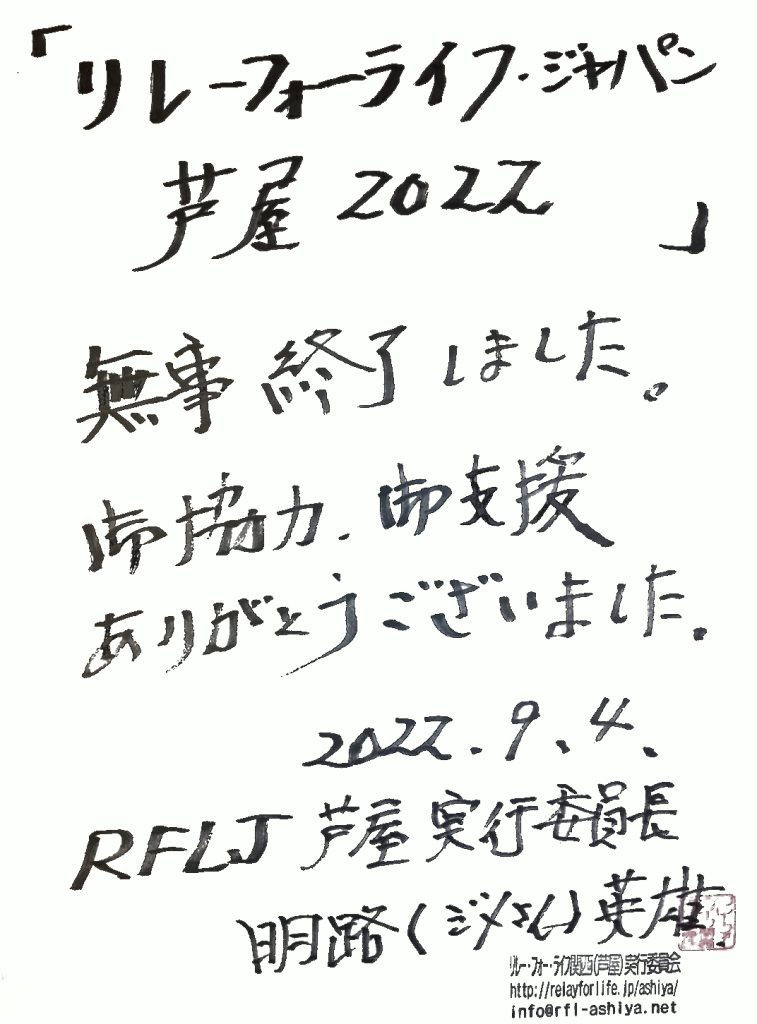 「リレーフォーライフ・ジャパン
芦屋 2022 」
無事 終了しました。
御協力、御支援
ありがとうございました。
2022.9.4.
RFLJ 芦屋 実行委員長
明路(ジメさん)英雄
リレー・フォー・ライフ関西(芦屋)実行委員会
http://relayforlife.jp/ashiya/
info@rfl-ashiya.net